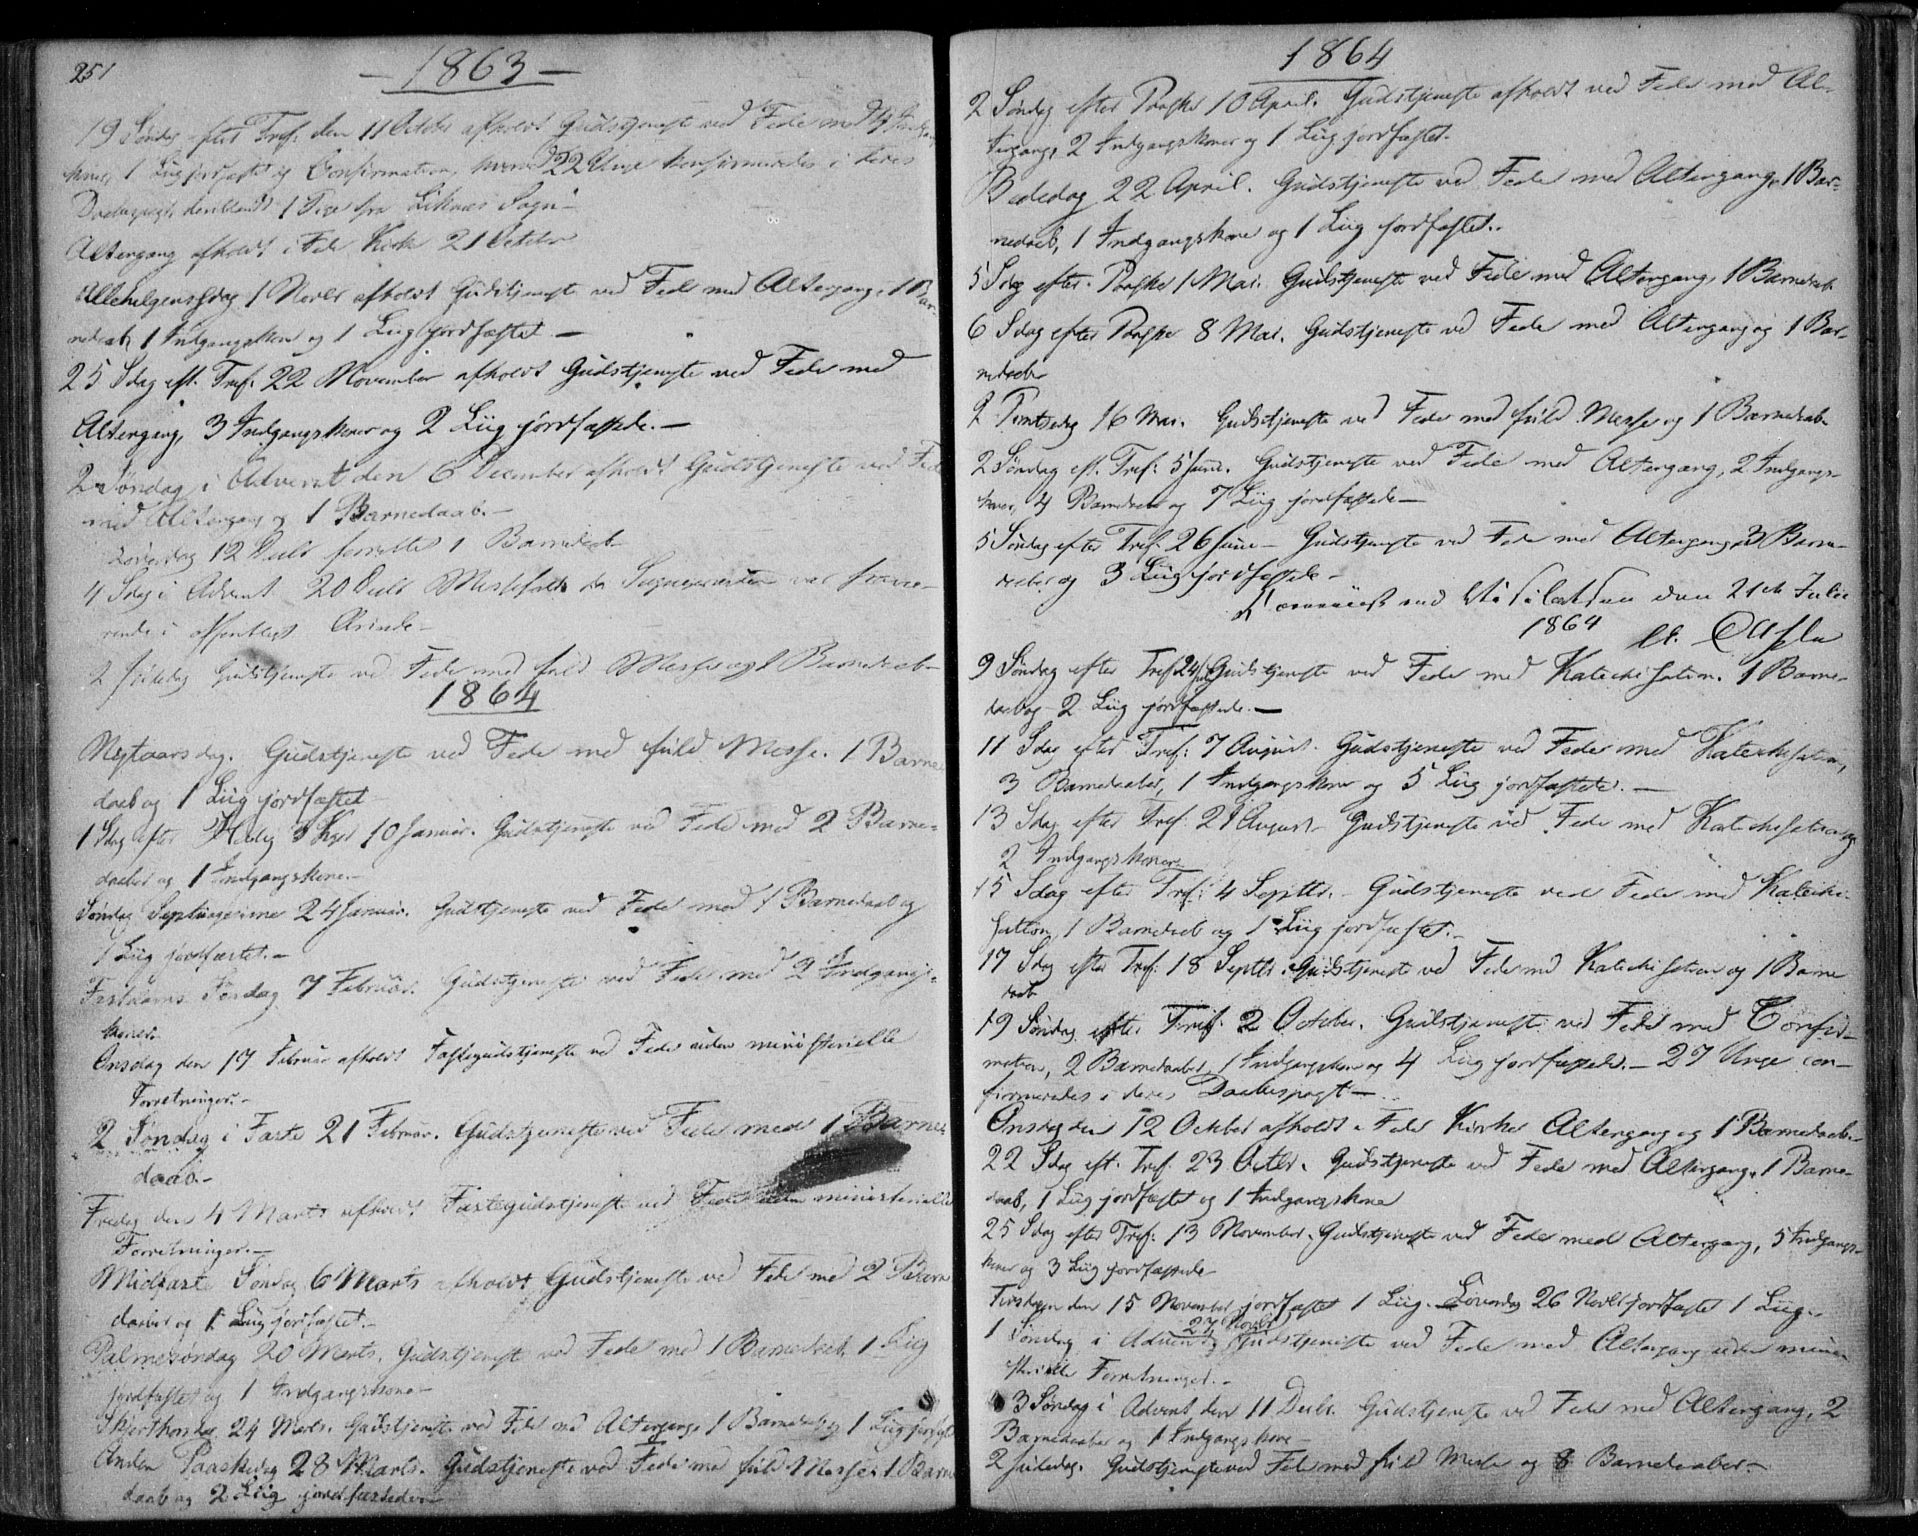 251
— 1863 —
19 Søndag efter Tref. den 11 October afholdt Gudstjeneste ved Fede med 4 Indgangs-
koner, 1 Liig jordfæstet og Confirmation, hvorved 22 Unge konfirmeredes i deres
Daabspagt, deriblandt 1 fra Liknæs Sogn —
Altergang afholdt i Fede Kirke 21 October
Allehelgensdag 1 Novbr afholdt Gudstjeneste ved Fede med Altergang, 1 Bar-
nedaab, 1 Indgangskone og 1 Liig jordfæstet —
25 Sdag eft. Tref: 22 November afholdt Gudstjeneste ved Fede med
Altergang, 3 Indgangskoner og 2 Liig jordfæstede. —
2 Søndag i Advent den 6 December afholdt Gudstjeneste ved Fede
med Altergang og 1 Barnedaab. —
Løverdag 12 Decbr forrettet 1 Barnedaab
4 Sdag i Advent 20 Decbr Messefald da Sognepresten var fravæ-
rende i offentligt Ærinde —
2 Juledag Gudstjeneste ved Fede med fuld Messe og 1 Barnedaab —
1864
Nytaarsdag. Gudstjeneste ved Fede med fuld Messe. 1 Barne-
daab og 1 Liig jordfæstet
1 Sdag efter Hellig 3 Kger 10 Januar. Gudstjeneste ved Fede med 2 Barne-
daaber og 1 Indgangskone. —
Søndag Septuagesima 24 Januar. Gudstjeneste ved Fede med 1 Barnedaab og
1 Liig jordfæstet. —
Fastelavns Søndag 7 Februar. Gudstjeneste ved Fede med 2 Indgangs-
koner.
Onsdag den 17 Februar afholdt Fastegudstjeneste ved Fede uden ministerielle
Forretninger. —
2 Søndag i Faste 21 Februar. Gudstjeneste ved Fede med 1 Barne-
daab. —
Fredag den 4 Marts afholdt Fastegudstjeneste ved Fede uden ministerielle
Forretninger. —
Midfaste Søndag 6 Marts afholdt Gudstjeneste ved Fede med 2 Barne-
daaber og 1 Liig jordfæstet. —
Palmesøndag 20 Marts. Gudstjeneste ved Fede med 1 Barnedaab, 1 Liig
jordfæstet og 1 Indgangskone —
Skjærthorsdag 24 Marts. Gudstjeneste ved Fede med Altergang, 1 Barnedaab og 1 Liig jordfæst
Anden Paaskedag 28 Marts. Gudstjeneste ved Fede med fuld Messe. 1 Barne
daab og 2 Liig jordfæstede —
1864
2 Søndag efter Paaske 10 April. Gudstjeneste afholdt ved Fede med Al-
tergang, 2 Indgangskoner og 1 Liig jordfæstet.
Bededag 22 April. Gudstjeneste ved Fede med Altergang, 1 Bar-
nedaab, 1 Indgangskone og 1 Liig jordfæstet.
5 Sdag efter Paaske 1 Mai. Gudstjeneste ved Fede med Altergang, 1 Barnedaab
6 Sdag efter Paaske 8 Mai. Gudstjeneste ved Fede med Altergang og 1 Bar-
nedaab
2 Pintsedag 16 Mai. Gudstjeneste ved Fede med fuld Messe og 1 Barnedaab
2 Søndag eft. Tref: 5 Juni. Gudstjeneste ved Fede med Altergang, 2 Indgangs-
koner, 4 Barnedaab og 7 Liig jordfæstede —
5 Søndag efter Tref. 26 Juni — Gudstjeneste ved Fede med Altergang, 3 Barne-
daaber og 3 Liig jordfæstede —
ved Visitatsen den 21de Juli
1864
9 Søndag efter Tref 24 Juli Gudstjeneste ved Fede med Katechisation. 1 Barne-
daab og 2 Liig jordfæstede. —
11 Sdag efter Tref: 7 August. Gudstjeneste ved Fede med Katechisation,
3 Barnedaaber, 1 Indgangskone og 5 Liig jordfæstede. —
13 Sdag efter Tref. 21 August. Gudstjeneste ved Fede med Katechisation og
2 Indgangskoner
15 Sdag efter Tref: 4 Septbr. Gudstjeneste ved Fede med Katechi-
sation, 1 Barnedaab og 1 Liig jordfæstet. —
17 Sdag efter Tref: 18 Septbr. Gudstjeneste ved Fede med Katechisation og 1 Barne
daab
19 Søndag efter Tref: 2 October. Gudstjeneste ved Fede med Confir-
mation, 2 Barnedaaber, 1 Indgangskone og 4 Liig jordfæstede. — 27 Unge con-
firmeredes i deres Daabespagt —
Onsdag den 12 October afholdt i Fede Kirke Altergang og 1 Barnedaab
22 Sdag eft. Tref. 23 Octbr. Gudstjeneste ved Fede med Altergang, 1 Barne-
daab, 1 Liig jordfæstet og 1 Indgangskone
25 Sdag efter Tref: 13 November. Gudstjeneste ved Fede med Altergang, 5 Indgangs-
koner og 3 Liig jordfæstede
Tirsdagen den 15 November jordfæstet 1 Liig. Løverdag 26 Novbr jordfæstet 1 Liig.
1 Søndag i Advent 27 Novbr Gudstjeneste ved Fede med Altergang uden mini-
sterielle Forretninger. —
3 Søndag i Advent den 11 Decbr. Gudstjeneste ved Fede med Altergang, 2
Barnedaaber og 1 Indgangskone —
2 Juledag. Gudstjeneste ved Fede med fuld Messe og 8 Barnedaaber. —